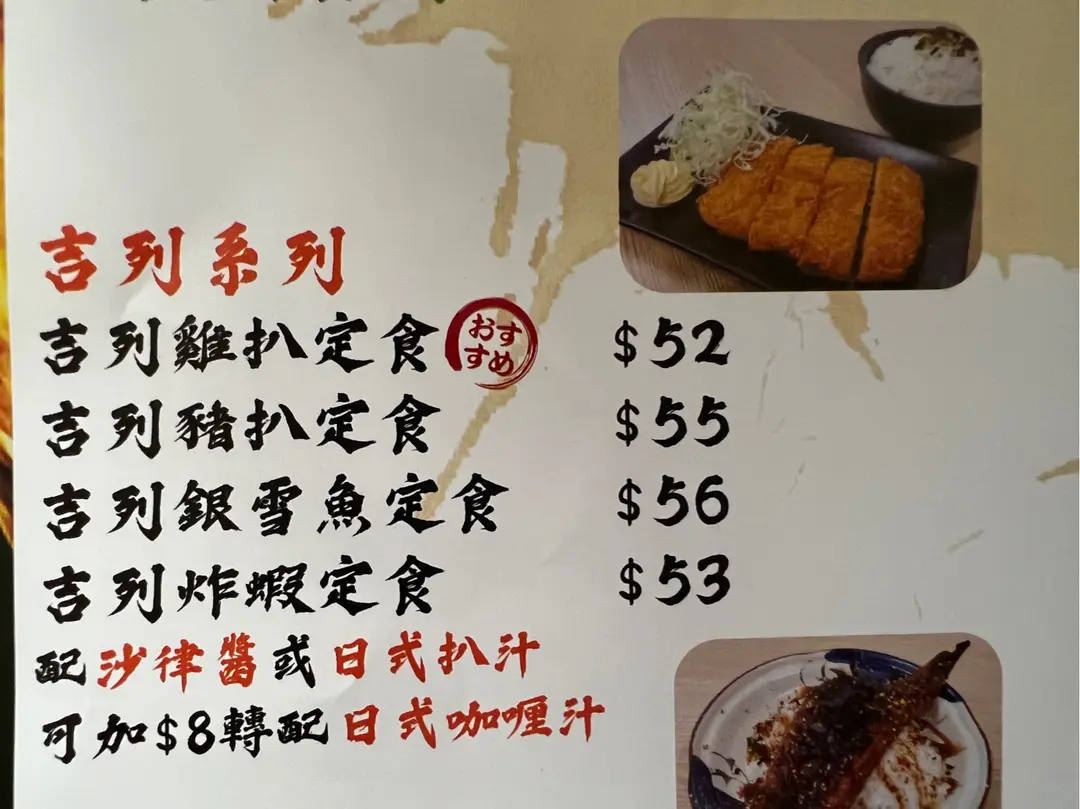 吉列系列
吉列雞扒定食 おすすめ $52
吉列豬扒定食 $55
吉列銀雪魚定食 $56
吉列炸蝦定食 $53
配沙律醬或日式扒汁
可加$8轉配日式咖喱汁